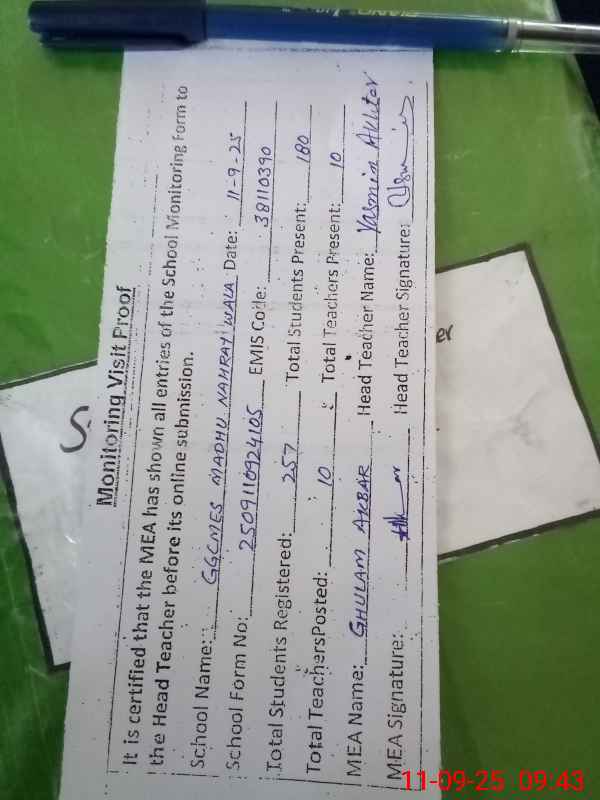 PIANO
Monitoring Visit Proof
It is certified that the MEA has shown all entries of the School Monitoring Form to
the Head Teacher before its online submission.
School Name: GGCMES MADHU NAHRAY WALA Date: 11-9-25
School Form No: 2509110924105 EMIS Code: 38110390
Total Students Registered: 257 Total Students Present: 180
Total TeachersPosted: 10 Total Teachers Present: 10
MEA Name: GHULAM AKBAR Head Teacher Name: Yasmin Akhter
MEA Signature: Head Teacher Signature:
S
er
11-09-25 09:43